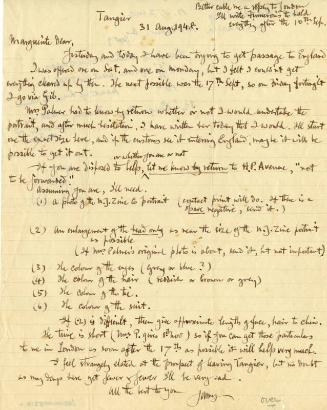 Better cable me a reply to London
I'll write Timarous to hold
everything after the 10th Sep.
Tangier
31 Aug. 1948.
Marguerite Dear,
Yesterday and today I have been trying to get passage to England
I was offered one on Sat, and one on Monday, but I felt I couldn't get
everything cleared up by then. The next possible was the 17th Sept, so on Friday fortnight
I go via Gib.
Mrs Palmer had to know by return whether or not I would undertake the
portrait, and after much hesitation, I have written her today that I would. I'll start
one the exact size here, and if the customs see it entering England, maybe it will be
possible to get it out.
or whether you are not
If you are disposed to help, let me know by return to H.P. Avenue, "not
to be forwarded"
Assuming you are, I'll need.
(1) A photo of the M.J. Zinc portrait (contact print will do. If there is a
spare negative, send it.)
(2) An enlargement of the head only as near the size of the M.J. Zinc portrait
as possible
(If Mrs. Palmer's original photo is about, send it, but not important)
(3) The colour of the eyes (grey or blue?)
(4) The colour of the hair (reddish or brown or grey)
(5) The colour of the tie.
(6) The colour of the suit.
If (2) is difficult, then give approximate length of face, hair to chin.
The time is short (Mrs. P. gives 1st Nov) so if you can get these particulars
to me in London as soon after the 17th as possible it will help very much.
I feel strangely elated at the prospect of leaving Tangier, but no doubt
as my days here get fewer & fewer I'll be very sad.
All the best to you
James
over